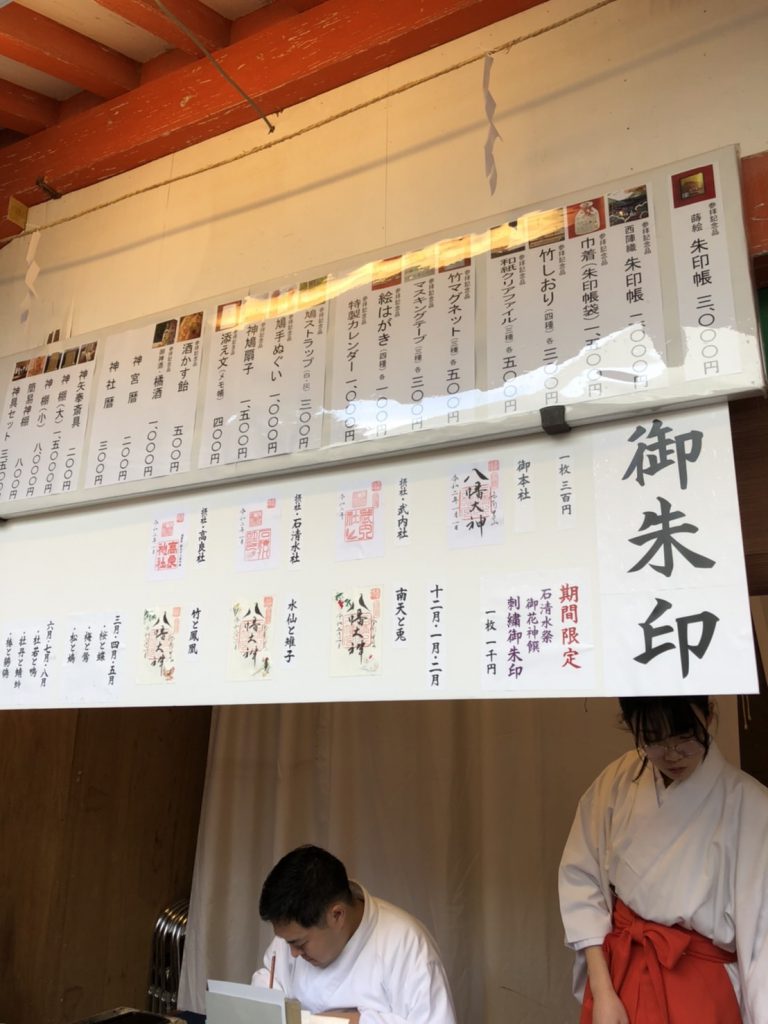 参拝記念品
蒔絵 朱印帳 三、〇〇〇円
参拝記念品
西陣織 朱印帳 二、〇〇〇円
参拝記念品
巾着(朱印帳袋) 一、五〇〇円
参拝記念品
竹しおり(四種) 各 三〇〇円
参拝記念品
和紙クリアファイル(三種) 各 五〇〇円
参拝記念品
竹マグネット(三種) 各 五〇〇円
参拝記念品
マスキングテープ(三種) 各 三〇〇円
参拝記念品
絵はがき(四種) 各 一〇〇円
参拝記念品
特製カレンダー 一、〇〇〇円
参拝記念品
鳩ストラップ(白・灰) 三〇〇円
参拝記念品
鳩手ぬぐい 一、〇〇〇円
参拝記念品
神鳩扇子 一、五〇〇円
参拝記念品
添え文(メモ帳) 四〇〇円
参拝記念品
酒かす飴 五〇〇円
御神酒・橘酒 一、〇〇〇円
神宮暦 二〇〇円
神社暦 三〇〇円
神矢奉斎具 二〇〇円
神棚(大) 一、五〇〇円
神棚(小) 八、〇〇〇円
簡易神棚 八〇〇円
神具セット 三、五〇〇円
御朱印
一枚 三百円
御本社
八幡大神
摂社・武内社
摂社・石清水社
摂社・高良社
高良神社
期間限定
石清水祭
御花神饌
刺繍御朱印
一枚 一千円
十二月・一月・二月
南天と兎
八幡大神
水仙と雉子
八幡大神
竹と鳳凰
八幡大神
三月・四月・五月
・桜と蝶
・梅と鶯
・松と鳩
六月・七月・八月
・杜若と鴫
・牡丹と蜻蛉
・椿と鶺鴒